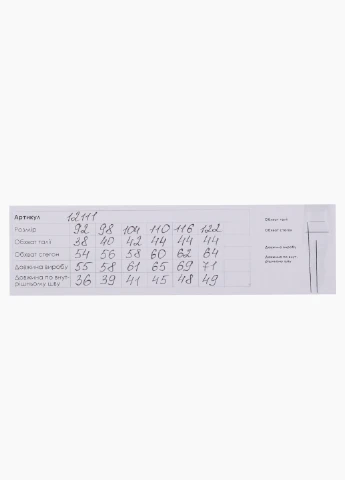 Артикул 12111
Розмір 92 98 104 110 116 122
Обхват талії 38 40 42 44 44 44
Обхват стегон 54 56 58 60 62 64
Довжина виробу 55 58 61 65 69 71
Довжина по внут-
рішньому шву 36 39 41 45 48 49
Обхват талії
Обхват стегон
Довжина виробу
Довжина по внут-
рішньому шву